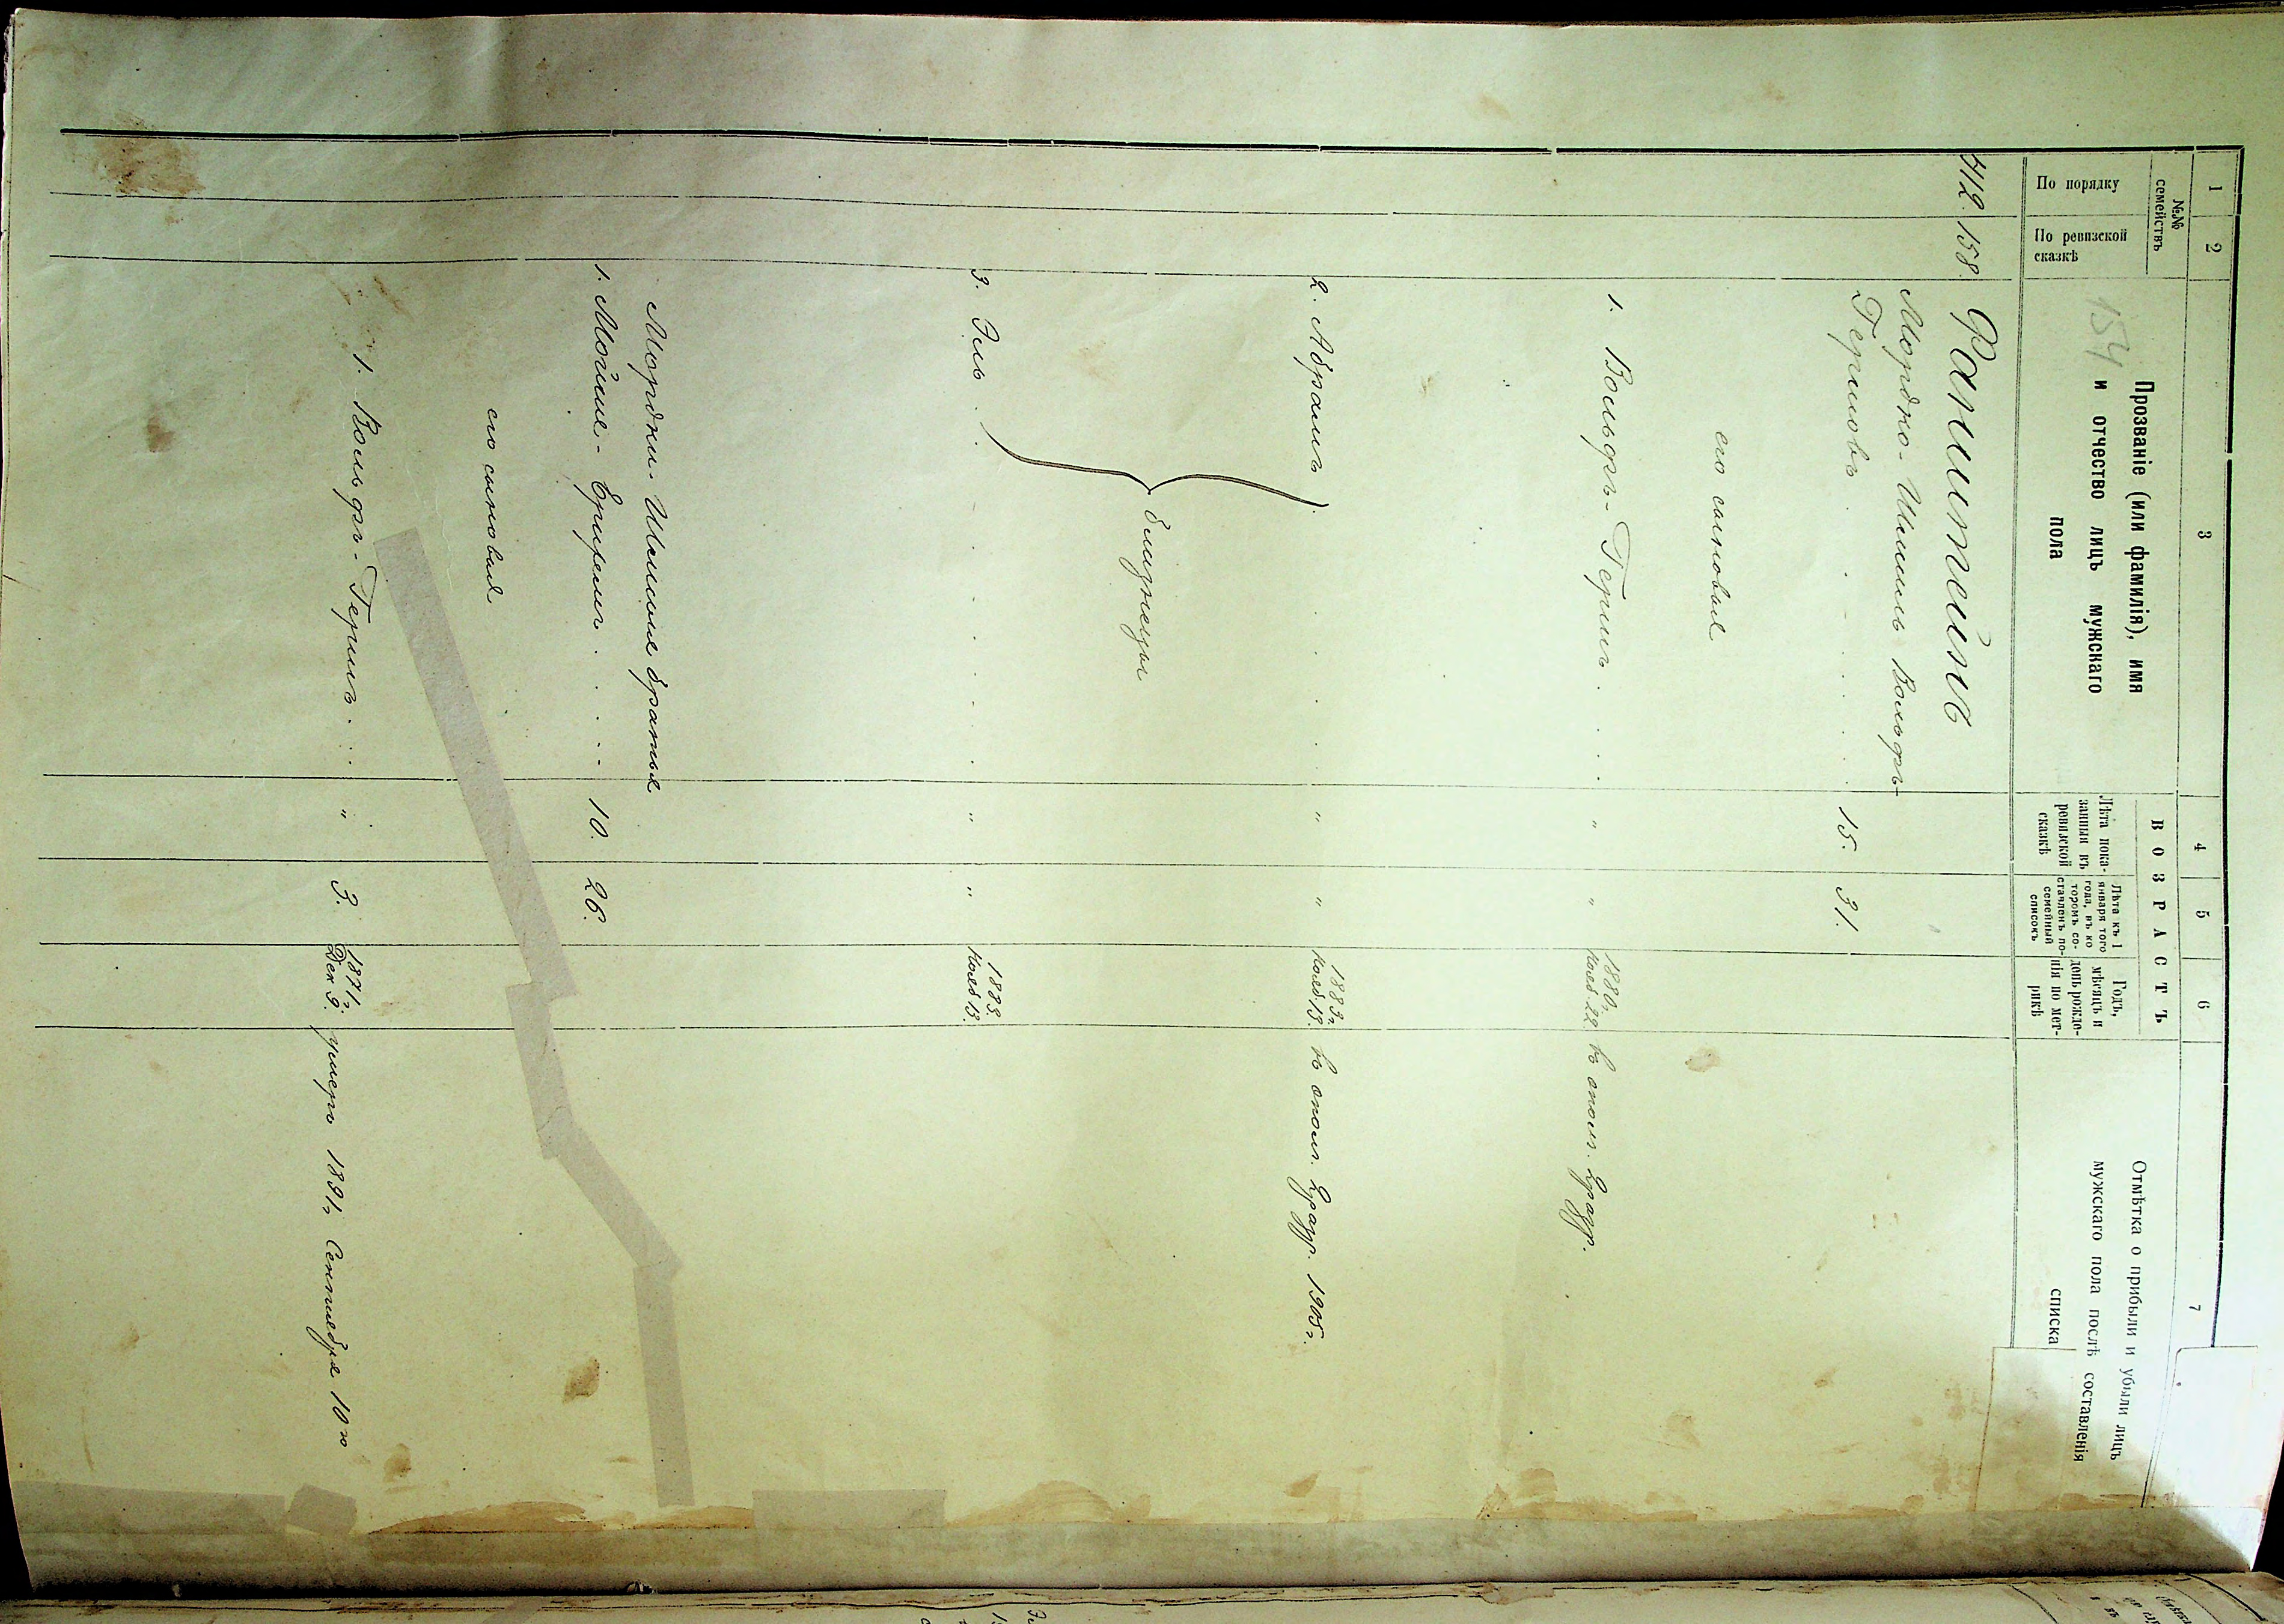 1 2 3 4 5 6 7
№№ семействъ
По порядку
По ревизской
сказкѣ
Прозваніе (или фамилія), имя
и отчество лицъ мужскаго
пола
154
ВОЗРАСТЪ
Лѣта пока-
занныя въ
ревизской
сказкѣ
Лѣта къ 1
января того
года, въ ко
торомъ со-
ставленъ по-
семейный
списокъ
Годъ,
мѣсяцъ и
день рожде-
нія по мет-
рикѣ
Отмѣтка о прибыли и убыли лицъ
мужскаго пола послѣ составленія
списка
412. 158. Фанштейнъ
Мордко-Шмиль Вольфъ-
Гершовъ . . . . . 15. 31.
его сыновья
1. Вольфъ-Гершъ . . . " " 1880г. Нояб. 22. въ опол. 2разр.
2. Абрамъ . . . " " 1883г. Нояб 13. въ опол. 2разр. 1905г.
близнецы
3. Эль . . . . . " " 1883. Нояб 13.
Мордки-Шмиля братья
1. Мойше-Ефремъ . . . 10. 26.
его сыновья
1. Вольфъ-Гершъ . . . " 3. 1871г. Дек 9. умеръ 1891г. Сентября 10го